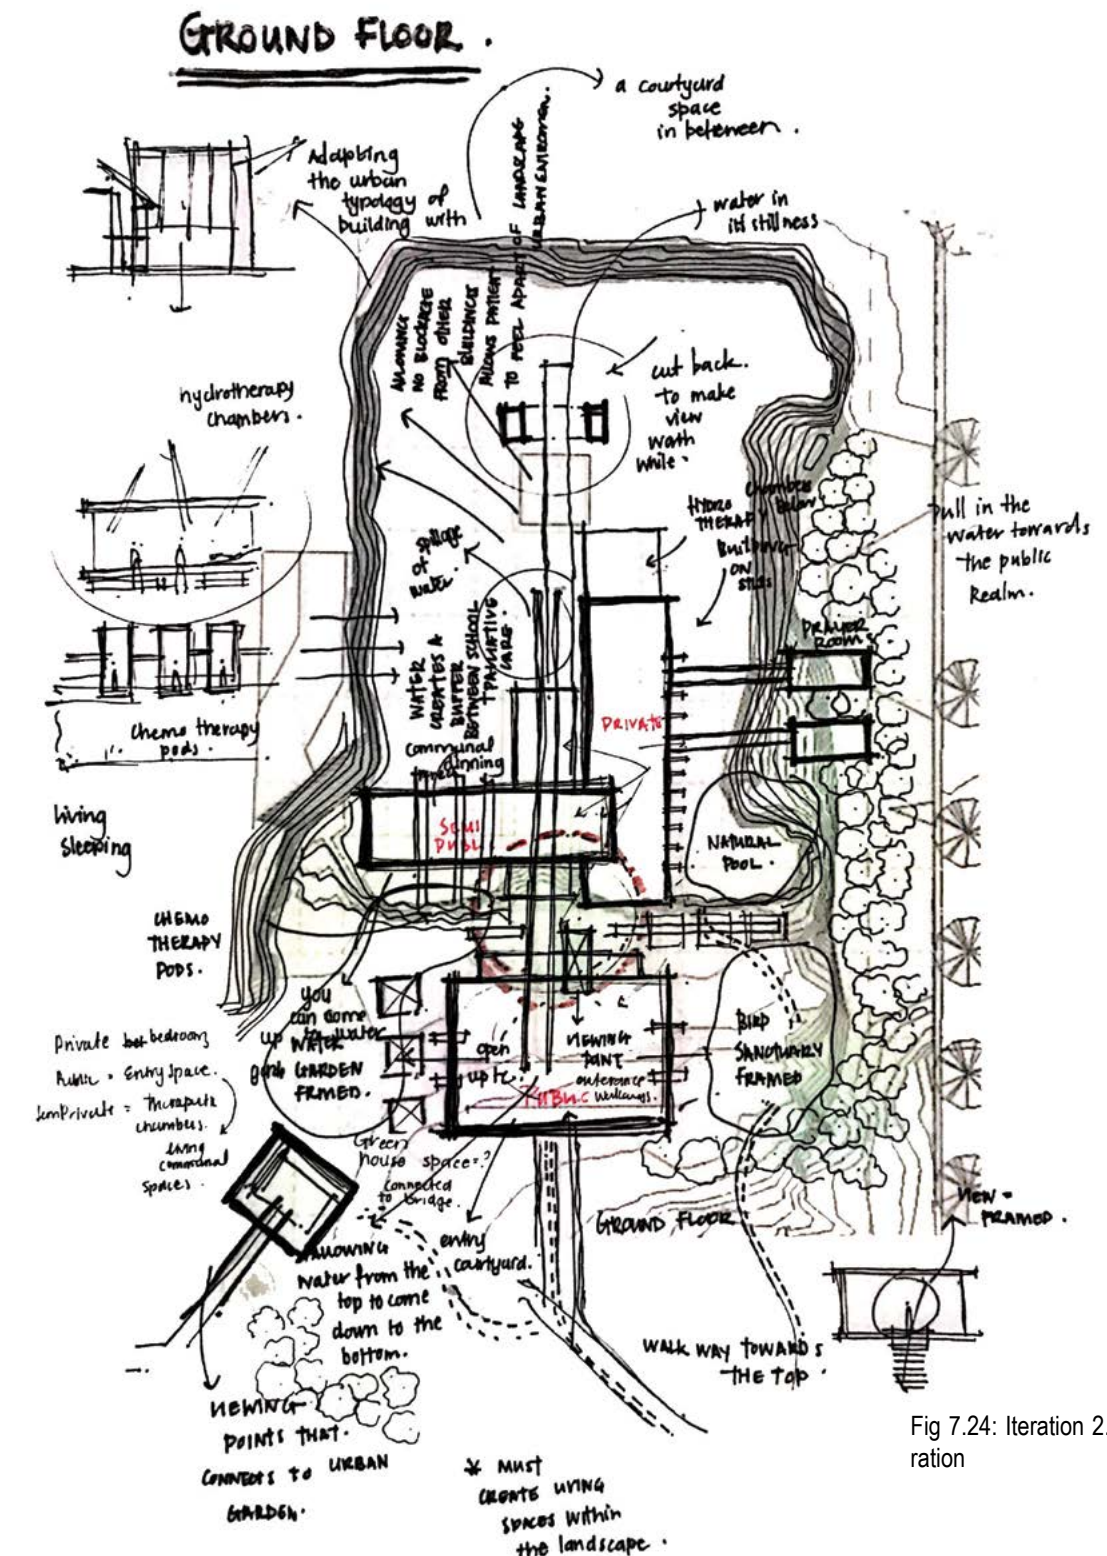 GROUND FLOOR.
a courtyard
space
in between.
Adapting
the urban
typology of
building with
water in
its stillness
ALLOWANCE
NO BLOCKAGE
FROM OTHER
BUILDINGS
ALLOWS PATIENT
TO FEEL APART OF LANDSCAPE
URBAN ENVIRONMEN.
cut back.
to make
view
worth
while.
hydrotherapy
chambers.
HYDRO
THERAPY
chambers
below
Building
ON
Stilts
Pull in the
water towards
the public
Realm.
spillage
of
water.
WATER
CREATES A
BUFFER
BETWEEN SCHOOL
PALLIATIVE
CARE.
PRAYER
ROOM
PRIVATE
Chemo therapy
pods.
communal
living
sleeping
SEMI
PUBL
NATURAL
POOL.
CHEMO
THERAPY
PODS.
you
can come
up to water
WATER
GARDEN
FRAMED.
open
up to.
VIEWING
POINT
PUBLIC
BIRD
SANCTUARY
FRAMED
Private bedrooms
Public = Entry space.
SemiPrivate = Therapeutic
chambers.
living
communal
spaces.
Green
house space?
connected
to bridge.
entry
courtyard.
GROUND FLOOR
VIEW =
FRAMED.
ALLOWING
water from the
top to come
down to the
bottom.
WALK WAY TOWARDS
THE TOP.
VIEWING
POINTS THAT.
CONNECTS TO URBAN
GARDEN.
* MUST
CREATE LIVING
SPACES within
the landscape.
Fig 7.24: Iteration 2.
ration